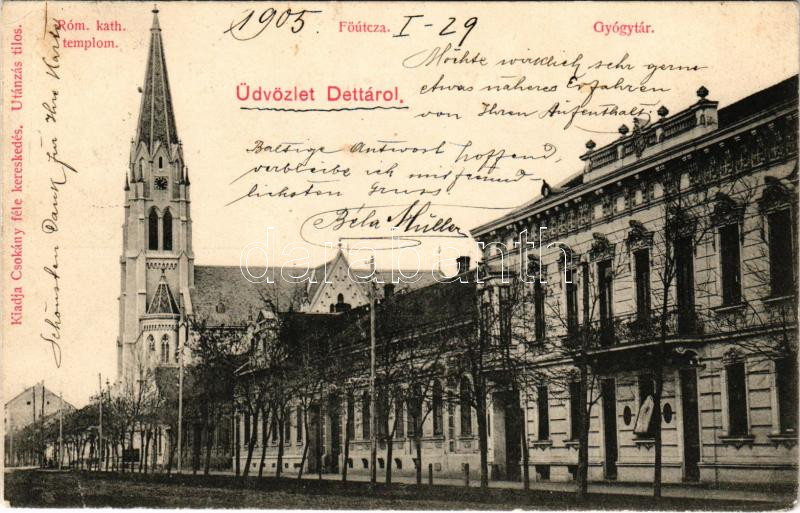 Róm. kath.
templom.
1905
Főútcza.
I-29
Gyógytár.
Üdvözlet Dettáról.
Möchte wirklich sehr gerne
etwas näheres Erfahren
von Ihrem Aufenthalt.
Baldige Antwort hoffend,
verbleibe ich mit freund
lichsten Gruss
Béla Müller
Schönsten Dank für Ihre Karte
Kiadja Csokány féle kereskedés. Utánzás tilos.
darabanth